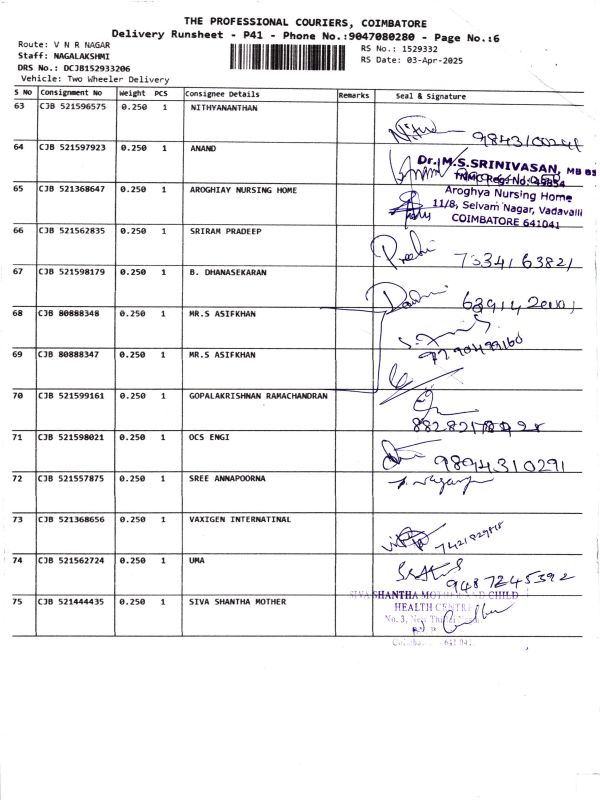 THE PROFESSIONAL COURIERS, COIMBATORE
Delivery Runsheet - P41 - Phone No.:9047080280 - Page No.:6
Route: V N R NAGAR
RS No.: 1529332
Staff: NAGALAKSHMI
RS Date: 03-Apr-2025
DRS No.: DCJB152933206
Vehicle: Two Wheeler Delivery
S NO Consignment No Weight PCS Consignee Details Remarks Seal & Signature
63 CJB 521596575 0.250 1 NITHYANANTHAN
64 CJB 521597923 0.250 1 ANAND
Dr. M.S.SRINIVASAN, MB BS
TNMC Reg. No: 49854
65 CJB 521368647 0.250 1 AROGHIAY NURSING HOME
Aroghya Nursing Home
11/8, Selvam Nagar, Vadavalli
COIMBATORE 641041
66 CJB 521562835 0.250 1 SRIRAM PRADEEP
7334163821
67 CJB 521598179 0.250 1 B. DHANASEKARAN
68 CJB 80888348 0.250 1 MR.S ASIFKHAN
69 CJB 80888347 0.250 1 MR.S ASIFKHAN
70 CJB 521599161 0.250 1 GOPALAKRISHNAN RAMACHANDRAN
71 CJB 521598021 0.250 1 OCS ENGI
9894310291
72 CJB 521557875 0.250 1 SREE ANNAPOORNA
73 CJB 521368656 0.250 1 VAXIGEN INTERNATINAL
74 CJB 521562724 0.250 1 UMA
9487245392
75 CJB 521444435 0.250 1 SIVA SHANTHA MOTHER
SIVA SHANTHA MOTHER AND CHILD
HEALTH CENTRE